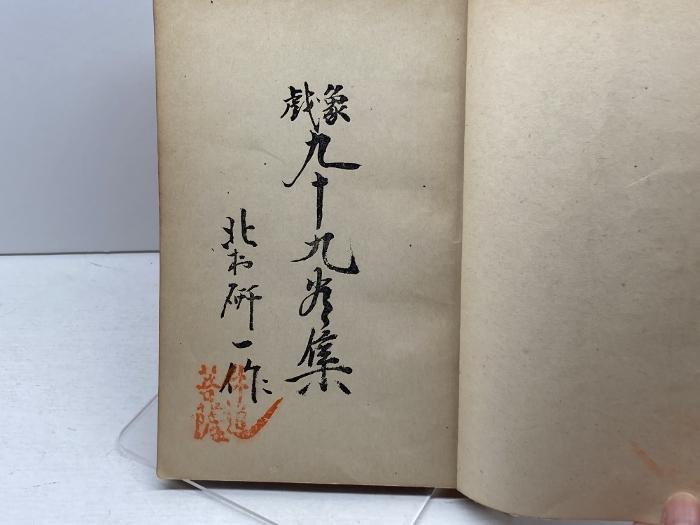 象戯
九十九集
北村研一作
道
菩薩